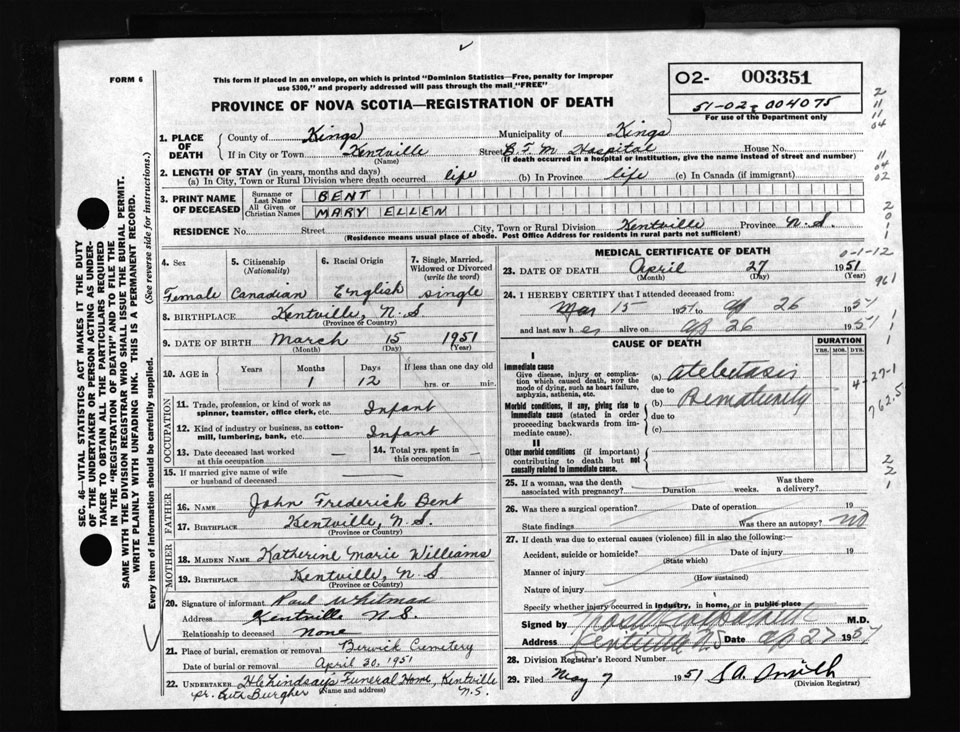 FORM 6
This form if placed in an envelope, on which is printed "Dominion Statistics—Free, penalty for improper
use $300," and properly addressed will pass through the mail "FREE"
PROVINCE OF NOVA SCOTIA—REGISTRATION OF DEATH
O2- 003351
51-02- 004075
For use of the Department only
1. PLACE OF DEATH
County of Kings Municipality of Kings
If in City or Town Kentville Street B F M Hospital House No.
(Name) (If death occurred in a hospital or institution, give the name instead of street and number)
2. LENGTH OF STAY (in years, months and days)
(a) In City, Town or Rural Division where death occurred life (b) In Province life (c) In Canada (if immigrant)
3. PRINT NAME OF DECEASED
Surname or Last Name BENT
All Given or Christian Names MARY ELLEN
RESIDENCE No. Street City, Town or Rural Division Kentville Province N.S.
(Residence means usual place of abode. Post Office Address for residents in rural parts not sufficient)
4. Sex
Female
5. Citizenship
(Nationality)
Canadian
6. Racial Origin
English
7. Single, Married, Widowed or Divorced
(write the word)
single
8. BIRTHPLACE Kentville, N.S.
(Province or Country)
9. DATE OF BIRTH March 15 1951
(Month) (Day) (Year)
10. AGE in Years Months Days If less than one day old
1 12 hrs. or min.
OCCUPATION
11. Trade, profession, or kind of work as spinner, teamster, office clerk, etc. Infant
12. Kind of industry or business, as cotton-mill, lumbering, bank, etc. Infant
13. Date deceased last worked at this occupation —
14. Total yrs. spent in this occupation —
15. If married give name of wife or husband of deceased —
FATHER
16. NAME John Frederick Bent
17. BIRTHPLACE Kentville, N.S.
(Province or Country)
MOTHER
18. MAIDEN NAME Katherine Marie Williams
19. BIRTHPLACE Kentville, N.S
(Province or Country)
20. Signature of informant Paul Whitman
Address Kentville N.S.
Relationship to deceased None
21. Place of burial, cremation or removal Berwick Cemetery
Date of burial or removal April 30, 1951
22. UNDERTAKER Lindsay's Funeral Home, Kentville N.S.
(Name and address)
pr. Burgher
MEDICAL CERTIFICATE OF DEATH
23. DATE OF DEATH April 27 1951
(Month) (Day) (Year)
24. I HEREBY CERTIFY that I attended deceased from:
Mar 15 1951 to Ap 26 1951
and last saw h er alive on ap 26 1951
CAUSE OF DEATH
DURATION
YRS. MOS. DYS.
I
Immediate cause
Give disease, injury or complication which caused death, NOT the mode of dying, such as heart failure, asphyxia, asthenia, etc.
(a) atelectasis
due to
Morbid conditions, if any, giving rise to immediate cause (stated in order proceeding backwards from immediate cause).
(b) Prematurity
due to
(c)
II
Other morbid conditions (if important) contributing to death but not causally related to immediate cause.
25. If a woman, was the death associated with pregnancy? Duration weeks. Was there a delivery?
26. Was there a surgical operation? Date of operation 19
State findings Was there an autopsy? no
27. If death was due to external causes (violence) fill in also the following:—
Accident, suicide or homicide? Date of injury 19
(State which)
Manner of injury
(How sustained)
Nature of injury
Specify whether injury occurred in industry, in home, or in public place
Signed by M.D.
Address Kentville NS Date ap 27 1951
28. Division Registrar's Record Number
29. Filed May 7 1951 Smith
(Division Registrar)
SEC. 46—VITAL STATISTICS ACT MAKES IT THE DUTY
OF THE UNDERTAKER OR PERSON ACTING AS UNDER-
TAKER TO OBTAIN ALL THE PARTICULARS REQUIRED
IN THE "REGISTRATION OF DEATH" AND TO FILE THE
SAME WITH THE DIVISION REGISTRAR WHO SHALL ISSUE THE BURIAL PERMIT.
WRITE PLAINLY WITH UNFADING INK. THIS IS A PERMANENT RECORD.
Every item of information should be carefully supplied. (See reverse side for instructions.)
2
11
11
04
11
04
02
2
0
1
1
0-1-12
961
1
1
1
4-27-1
762.5
2
2
1